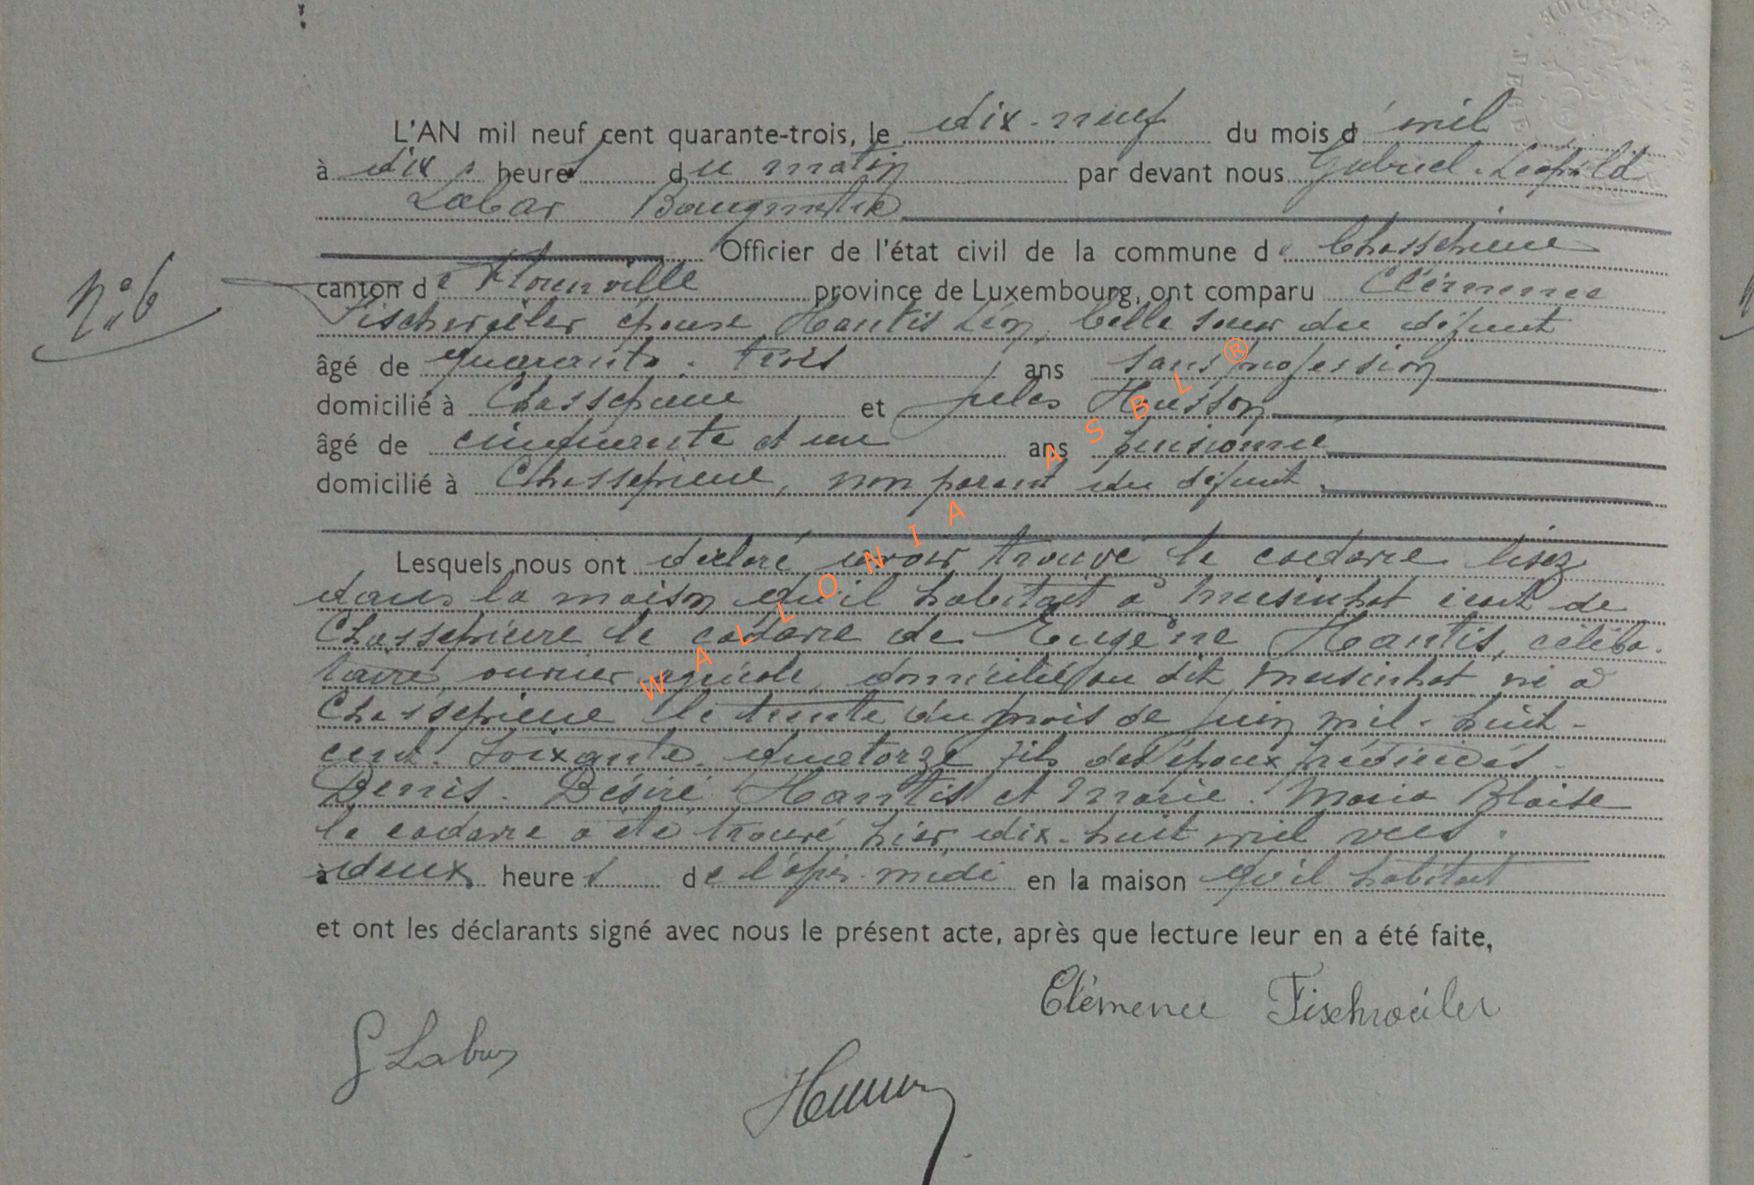 L'AN mil neuf cent quarante-trois, le dix-neuf du mois d'avril
à dix heures du matin par devant nous Gabriel-Léopold
Labar Bourgmestre
Officier de l'état civil de la commune de Chassepierre
N° 6
canton de Florenville province de Luxembourg, ont comparu Clémence
Fischweiler épouse Hantis Léon, belle sœur du défunt
âgé de quarante-trois ans sans profession
domicilié à Chassepierre et Jules Husson
âgé de cinquante et un ans pensionné
domicilié à Chassepierre, non parent du défunt.
Lesquels nous ont déclaré avoir trouvé le cadavre lisez
dans la maison qu'il habitait à Musinhot écart de
Chassepierre le cadavre de Eugène Hantis, céliba-
taire, ouvrier agricole, domicilié au dit Musinhot né à
Chassepierre le trente du mois de juin mil-huit-
cent-soixante-quatorze fils des époux prédécédés
Denis-Désiré Hantis et Marie-Maria Blaise
le cadavre a été trouvé hier dix-huit avril vers
à deux heures de l'après-midi en la maison qu'il habitait
et ont les déclarants signé avec nous le présent acte, après que lecture leur en a été faite,
Clémence Fischweiler
G Labar
Husson
WALLONIA ASBL ®